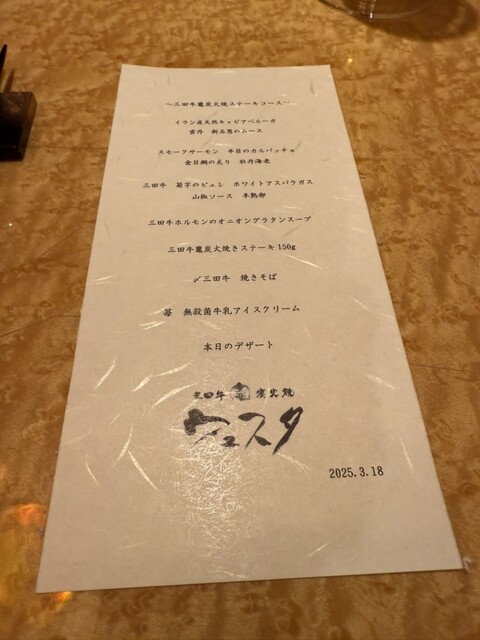 ～三田牛竈炭火焼ステーキコース～
イラン産天然キャビアベルーガ
雲丹　新玉葱のムース
スモークサーモン　平目のカルパッチョ
金目鯛の炙り　牡丹海老
三田牛　菊芋のピュレ　ホワイトアスパラガス
山椒ソース　半熟卵
三田牛ホルモンのオニオングラタンスープ
三田牛竈炭火焼きステーキ150g
〆三田牛　焼きそば
苺　無殺菌牛乳アイスクリーム
本日のデザート
三田牛 竈 炭火焼
ウェスタ
2025.3.18